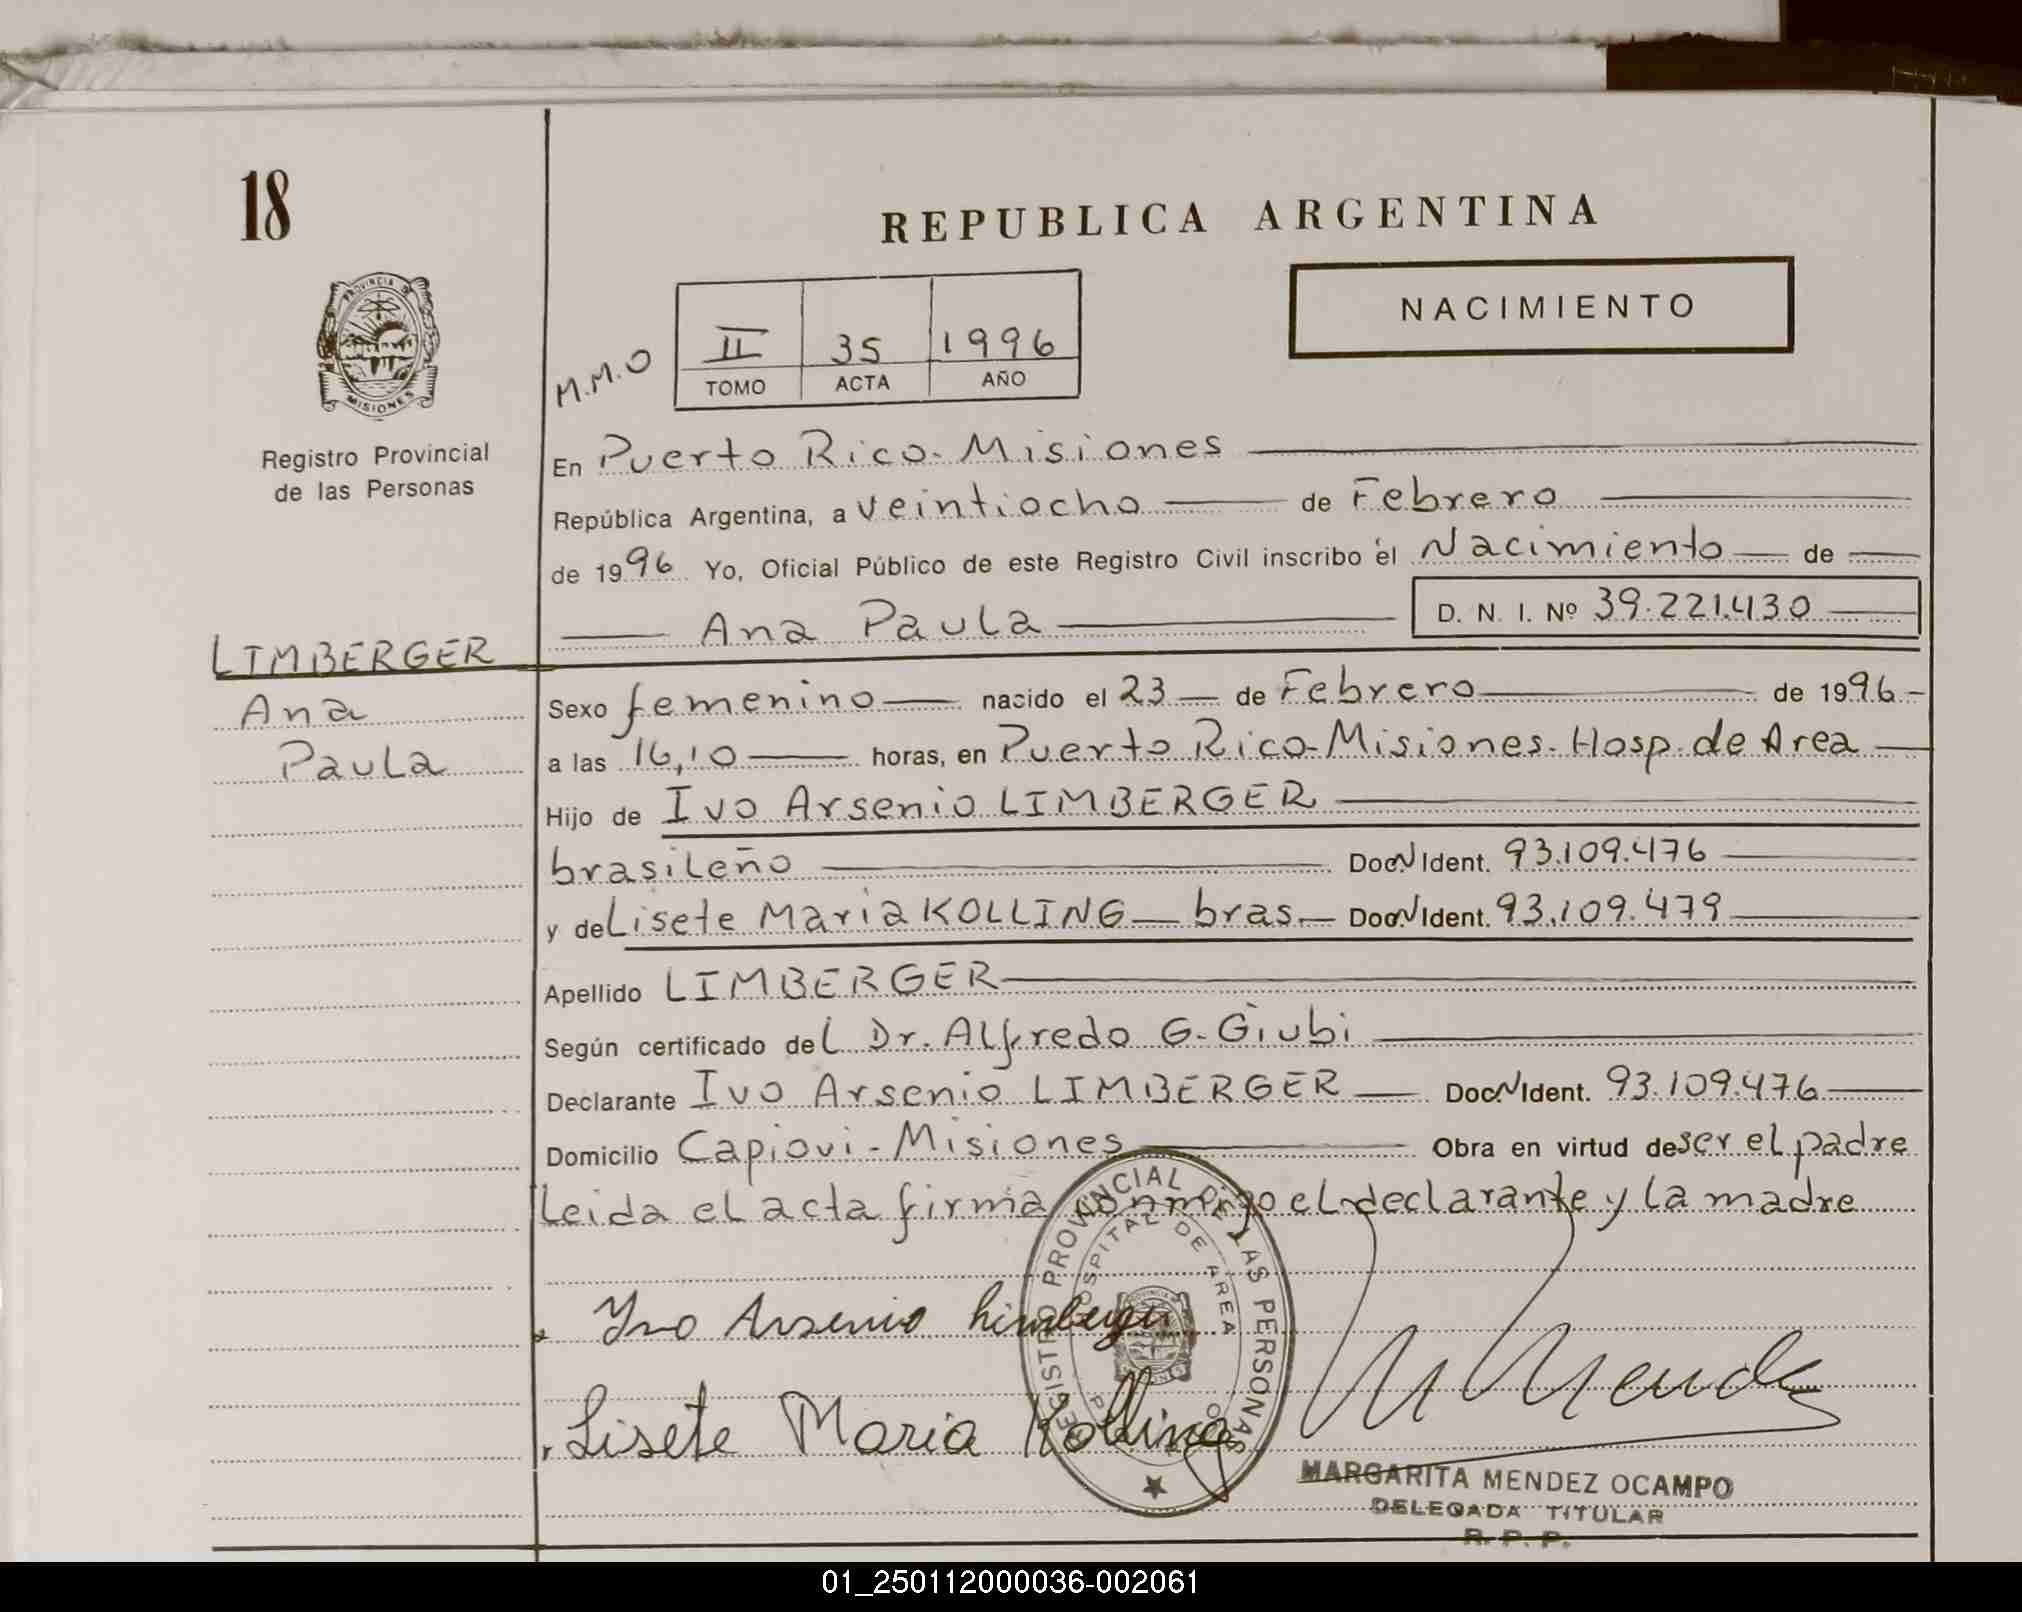 18
REPUBLICA ARGENTINA
NACIMIENTO
PROVINCIA DE
MISIONES
Registro Provincial
de las Personas
M.M.O
II 35 1996
TOMO ACTA AÑO
En Puerto Rico-Misiones
República Argentina, a veintiocho de Febrero
de 1996 Yo, Oficial Público de este Registro Civil inscribo el Nacimiento de
Ana Paula D. N. I. Nº 39.221.430
LIMBERGER
Ana
Paula
Sexo femenino nacido el 23 de Febrero de 1996
a las 16,10 horas, en Puerto Rico-Misiones. Hosp. de Area
Hijo de Ivo Arsenio LIMBERGER
brasileño Doc. N Ident. 93.109.476
y de Lisete Maria KOLLING bras. Doc. N Ident. 93.109.479
Apellido LIMBERGER
Según certificado del Dr. Alfredo G. Giubi
Declarante Ivo Arsenio LIMBERGER Doc. N Ident. 93.109.476
Domicilio Capiovi-Misiones Obra en virtud de ser el padre
Leida el acta firma conmigo el declarante y la madre
Ivo Arsenio Limberger
Lisete Maria Kolling
M Mendez
REGISTRO PROVINCIAL DE LAS PERSONAS
HOSPITAL DE AREA
MARGARITA MENDEZ OCAMPO
DELEGADA TITULAR
R. P. P.
01_250112000036-002061